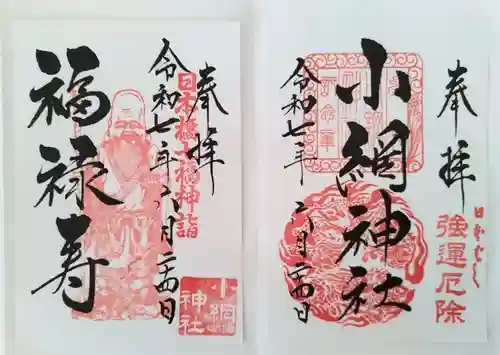 奉拝
日本橋七福神詣
令和七年六月二十四日
福禄寿
小網神社
奉拝
日本ばし
強運厄除
小網神社
令和七年六月二十四日